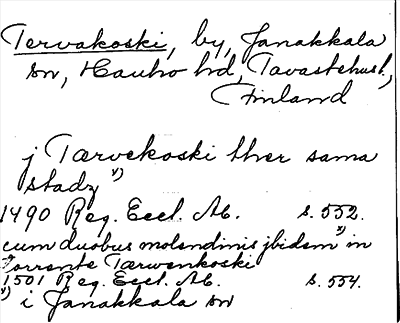 Tervakoski, by, Janakkala
sn, Hauho hd, Tavastehus l.,
Finland
j Tærvekoski ther sama
stadz x)
1490 Reg. Eccl. Ab. s. 552.
cum duobus molendinis jbidem x) in
torrente Tærwenkoski
1501 Reg. Eccl. Ab. s. 554.
x) i Janakkala sn